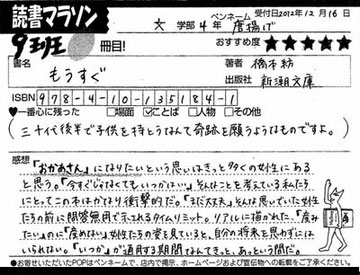 読書マラソン
ペンネーム 受付日2012年12月16日
文 学部 4年 唐揚げ
冊目!
おすすめ度 ★★★★★
書名
もうすぐ
著者 橋本 紡
出版社 新潮文庫
ISBN 978-4-10-135184-1
♥一番心に残った □場面 ☑ことば □人物 □その他
(三十代後半で子供を持とうなんて奇跡を願うようなものですよ。)
感想
「おかあさん」になりたいという思いはきっと多くの女性にある
と思う。「今すぐじゃなくても、いつかはぃ」そんなことを考えている私たち
にとってこの本はかなり衝撃的だ。「まだ大丈夫」そんな思いでいた女性
たちの前に問答無用で示されるタイムリミット。リアルに描かれた、「産み
たい」のに「産めない」女性たちの姿を見ていると、自分の将来を思わずには
いられない。「いつか」が通用する期間なんてきっと、あっという間だ。
●お寄せいただいたPOPはペンネームで、店内で掲示、ホームページおよび宣伝物への転載をご了承ください。